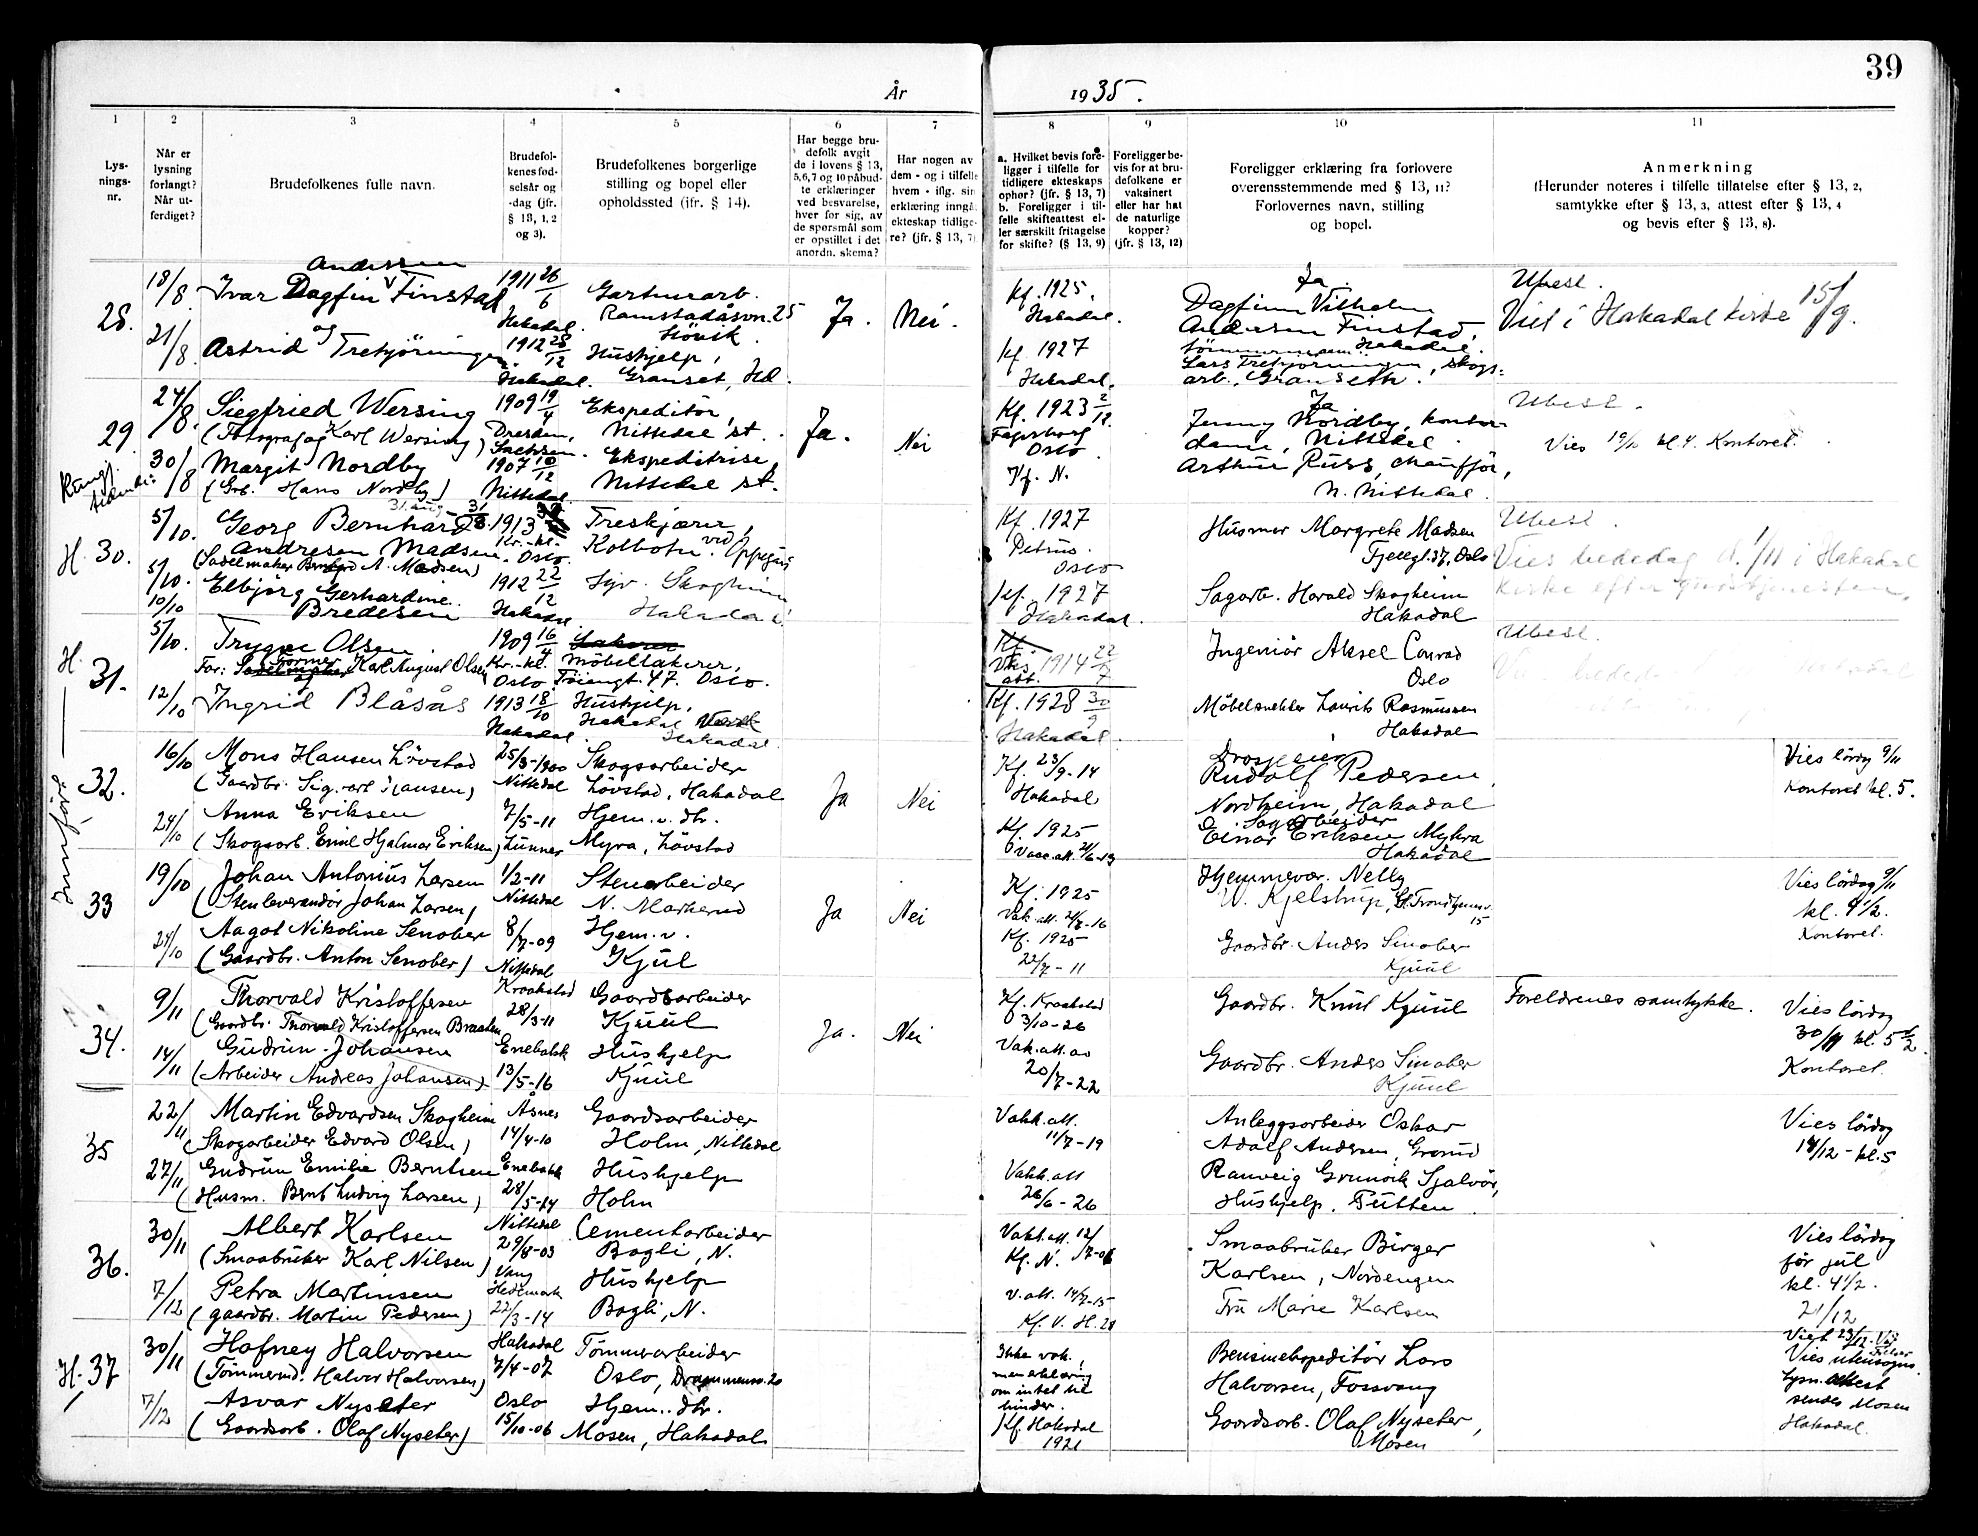 39
År 1935.
1 2 3 4 5 6 7 8 9 10 11
Lys-
nings-
nr.
Når er
lysning
forlangt?
Når ut-
ferdiget?
Brudefolkenes fulle navn.
Brudefol-
kenes fød-
selsår og
-dag (jfr.
§ 13, 1, 2
og 3).
Brudefolkenes borgerlige
stilling og bopel eller
opholdssted (jfr. § 14).
Har begge bru-
defolk avgit
de i lovens § 13,
5,6,7 og 10 påbud-
te erklæringer
ved besvarelse,
hver for sig, av
de spørsmål som
er opstillet i det
anordn. skema?
Har nogen av
dem - og i tilfelle
hvem - iflg. sin
erklæring inngå
ekteskap tidlige-
re? (jfr. § 13, 7)
a. Hvilket bevis fore-
ligger i tilfelle for
tidligere ekteskaps
ophør? (jfr. § 13, 7)
b. Foreligger i til-
felle skifteattest el-
ler særskilt fritagelse
for skifte? (§ 13, 9)
Foreligger be-
vis for at bru-
defolkene er
vaksinert
eller har hat
de naturlige
kopper?
(jfr. § 13, 12)
Foreligger erklæring fra forlovere
overensstemmende med § 13, 11?
Forlovernes navn, stilling
og bopel.
Anmerkning
(Herunder noteres i tilfelle tillatelse efter § 13, 2,
samtykke efter § 13, 3, attest efter § 13, 4
og bevis efter § 13, 8).
28.
18/8.
21/8.
Andersen
Ivar Dagfin Finstad
og
Astrid Tretjörningen
1911 26/6
Hakadal.
1912 28/12
Hakadal.
Gartnerarb.
Ramstadåsvn. 25
Hövik.
Hushjelp,
Granset, Hd.
Ja.
Nei.
Kf. 1925.
Hakadal.
Kf. 1927
Hakadal.
Ja.
Dagfinn Vilhelm
Andersen Finstad,
Hakadal.
Lars Tretjörningen, skogs-
arb., Granseth.
Ubesl.
Viet i Hakadal kirke 15/9.
29.
24/8.
30/8
Siegfried Wersing
(Fotograf Karl Wersing)
Margit Nordby
(Grb. Hans Nordby)
1909 19/4
Dresden,
Sachsen.
1907 10/12
Nittedal.
Ekspeditör,
Nittedal st.
Ekspeditrise,
Nittedal st.
Ja.
Nei
Kf. 1923 2/12.
Fagerborg
Oslo.
Kf. N.
Ja
Jenny Nordby, kontor-
dame, Nittedal.
Arthur Russ, chauffør,
N. Nittedal.
Ubesl.
Vies 19/10 kl. 4. Kontoret.
H. 30.
5/10.
5/10.
10/10
31. aug.
Georg Bernhard
Andresen Madsen
(Sadelmaker Bernhard A. Madsen)
Elbjörg Gerhardine
Bredesen
1913
Kr.-kl.
Oslo.
1912 22/12
Hakadal
Treskjærer,
Kolbotn ved Oppegård
Syv. Skogheim
Hakadal
Kf. 1927
Petrus.
Oslo
Kf. 1927
Hakadal.
Husmor Margrete Madsen
Fjellgt. 37, Oslo
Sagarb. Harald Skogheim
Hakadal
Ubesl.
Vies bededag d. 1/11 i Hakadal
kirke efter gudstjenesten.
H. 31.
5/10.
12/10
Trygve Olsen
Far: Former Karl August Olsen
Ingrid Blåsås
1909 16/4
Kr.-kl.
Oslo
1913 18/10
Hakadal
Möbeltakerer,
Töiengt. 47. Oslo.
Hushjelp,
Hakadal Verk
Hakadal
Kf.
Vaks. 1914 22/7
att.
Kf. 1928 30/9
Hakadal.
Ingeniör Aksel Conrad
Oslo
Möbelsnekker Laurits Rasmussen
Hakadal
Ubesl.
32.
16/10
24/10
Mons Hansen Lövstad
(Gaardbr. Sigvart Hansen)
Anna Eriksen
(Skogsarb. Emil Hjalmar Eriksen)
25/3-1900
Nittedal
7/5-11
Lunner
Skogsarbeider
Lövstad, Hakadal
Hjem. v. dtr.
Myra, Lövstad
Ja
Nei
Kf. 23/9-14
Hakadal
Kf. 1925
Vacc. att. 21/6-13
Drosjeeier
Rudolf Pedersen
Nordheim, Hakadal
Sagarbeider
Einar Eriksen Myhra
Hakadal
Vies lördag 9/11
Kontoret kl. 5.
33
19/10
24/10
Johan Antonius Larsen
(Stenleverandör Johan Larsen)
Aagot Nikoline Senober
(Gaardbr. Anton Senober)
1/2-11
Nittedal
8/7-09
Nittedal
Stenarbeider
N. Markerud
Hjem. v.
Kjul
Ja
Nei
Kf. 1925
Vak. att. 21/7-16
Kf. 1925
22/7-11
Hjemmevær. Nelly
W. Kjelstrup, Gl. Trondhjemsv.
15
Gaardbr. Anders Sinober
Kjuul
Vies lördag 9/11
kl. 4 1/2.
Kontoret.
34.
9/11
14/11
Thorvald Kristoffersen
(Gaardbr. Thorvald Kristoffersen Braaten
Gudrun Johansen
(Arbeider Andreas Johansen)
Kraakstad
28/3-11
Enebakk
13/5-16
Gaardsarbeider
Kjuul
Hushjelp
Kjuul
Ja.
Nei
Kf. Kraakstad
3/10-26
Vak. att. av
20/7-22
Gaardbr. Knut Kjuul
Gaardbr. Anders Sinober
Kjuul
Foreldrenes samtykke.
Vies lördag
30/11 kl. 5 1/2
Kontoret.
35
22/11
27/11
Martin Edvardsen Skogheim
(Skogarbeider Edvard Olsen)
Gudrun Emilie Berntsen
(Husm. Bernt Ludvig Larsen)
Åsnes
14/4-10
Enebakk
28/5-14
Gaardsarbeider
Holm, Nittedal
Hushjelp
Holm
Vakk. att.
11/7-19
Vakk. att
26/6-26
Anleggsarbeider Oskar
Adolf Andersen, Grorud
Ranveig Grunvik Sjalvör,
Hushjelp. Tutten.
Vies lördag
14/12 - kl. 5
36.
30/11
7/12
Albert Karlsen
(Smaabruker Karl Nilsen)
Petra Martinsen
(gaardbr. Martin Pedersen)
Nittedal
29/8-03
Vang
Hedemark
22/3-14
Cementarbeider
Bagli, N.
Hushjelp
Bagli, N.
Vakk. att. 12/7-06
Kf. N.
V. att. 14/7-15
Kf. V. H. 28
Smaabruker Birger
Karlsen, Nordengen
Fru Marie Karlsen
Vies lördag
för jul
kl. 4 1/2.
21/12
H. 37
30/11
7/12
Hafney Halvorsen
(Tömmermd. Halvor Halvorsen)
Asvar Nyseter
(Gaardsarb. Olaf Nyseter)
Hakadal
7/4-07
Oslo
15/10-06
Tömmerarbeider
Oslo, Drammensv. 20
Hjem. dtr.
Mosen, Hakadal
Ja
Ikke vak.,
men erklæring
om intet til
hinder.
Kf. Hakadal
1921
Bensinekspeditör Lars
Halvorsen, Fossvang
Gaardsarb. Olaf Nyseter,
Mosen
Viet 23/12.
Vies utensogns
lysn. attest
sendes Mosen
Hakadal.